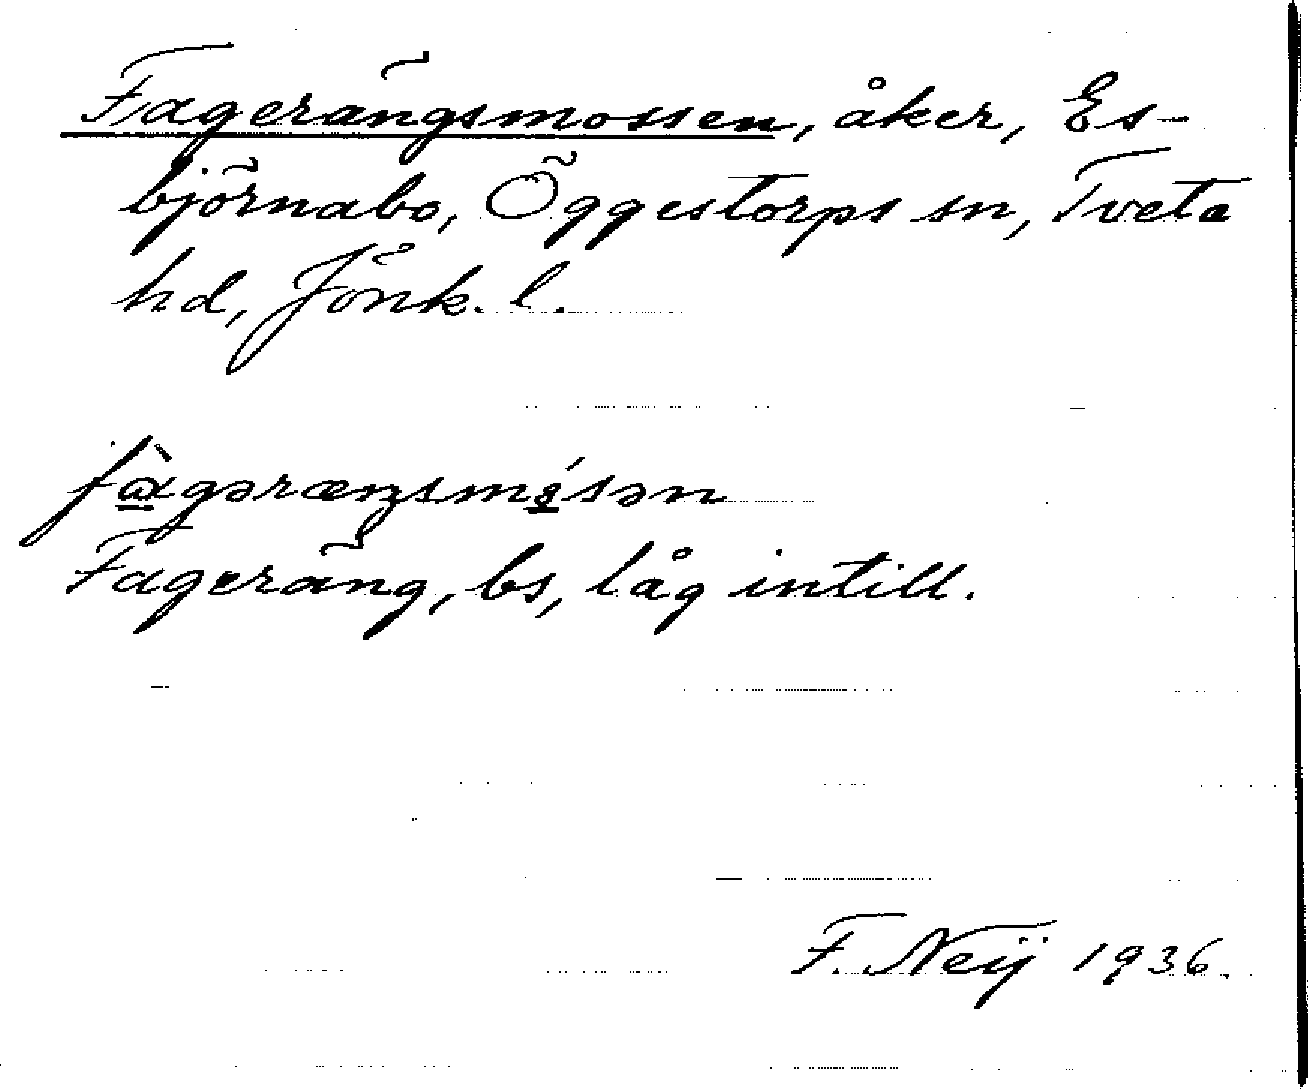 Fagerängsmossen, åker, Es-
björnabo, Öggestorps sn, Tveta
hd, Jönk. l.
fàgəræŋsmósən
Fageräng, bs, låg intill.
F. Neij 1936.